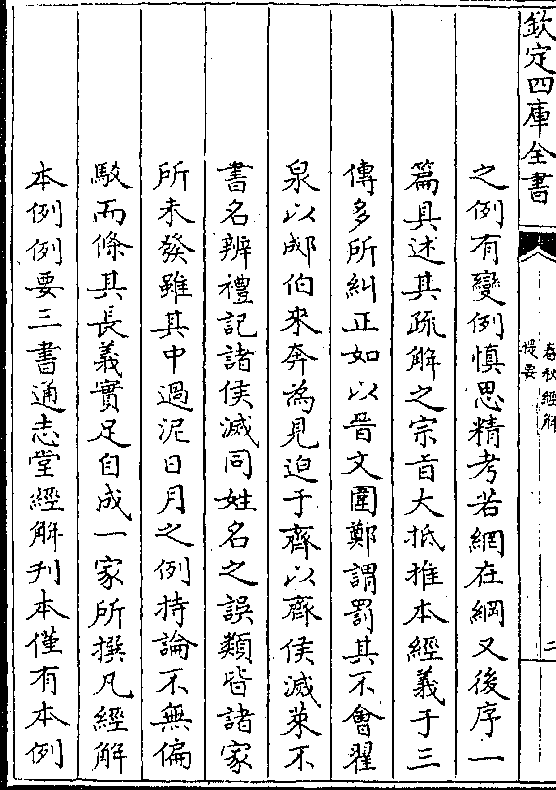 欽定四庫全書
春秋經解
提要
二
之例有變例慎思精考若網在綱又後序一
篇具述其疏解之宗旨大抵推本經義于三
傳多所糾正如以晉文圍鄭謂罰其不會翟
泉以郕伯來奔為見迫于齊以齊侯滅萊不
書名辨禮記諸侯滅同姓名之誤類皆諸家
所未發雖其中過泥日月之例持論不無偏
駁而條其長義實足自成一家所撰凡經解
本例例要三書通志堂經解刊本僅有本例